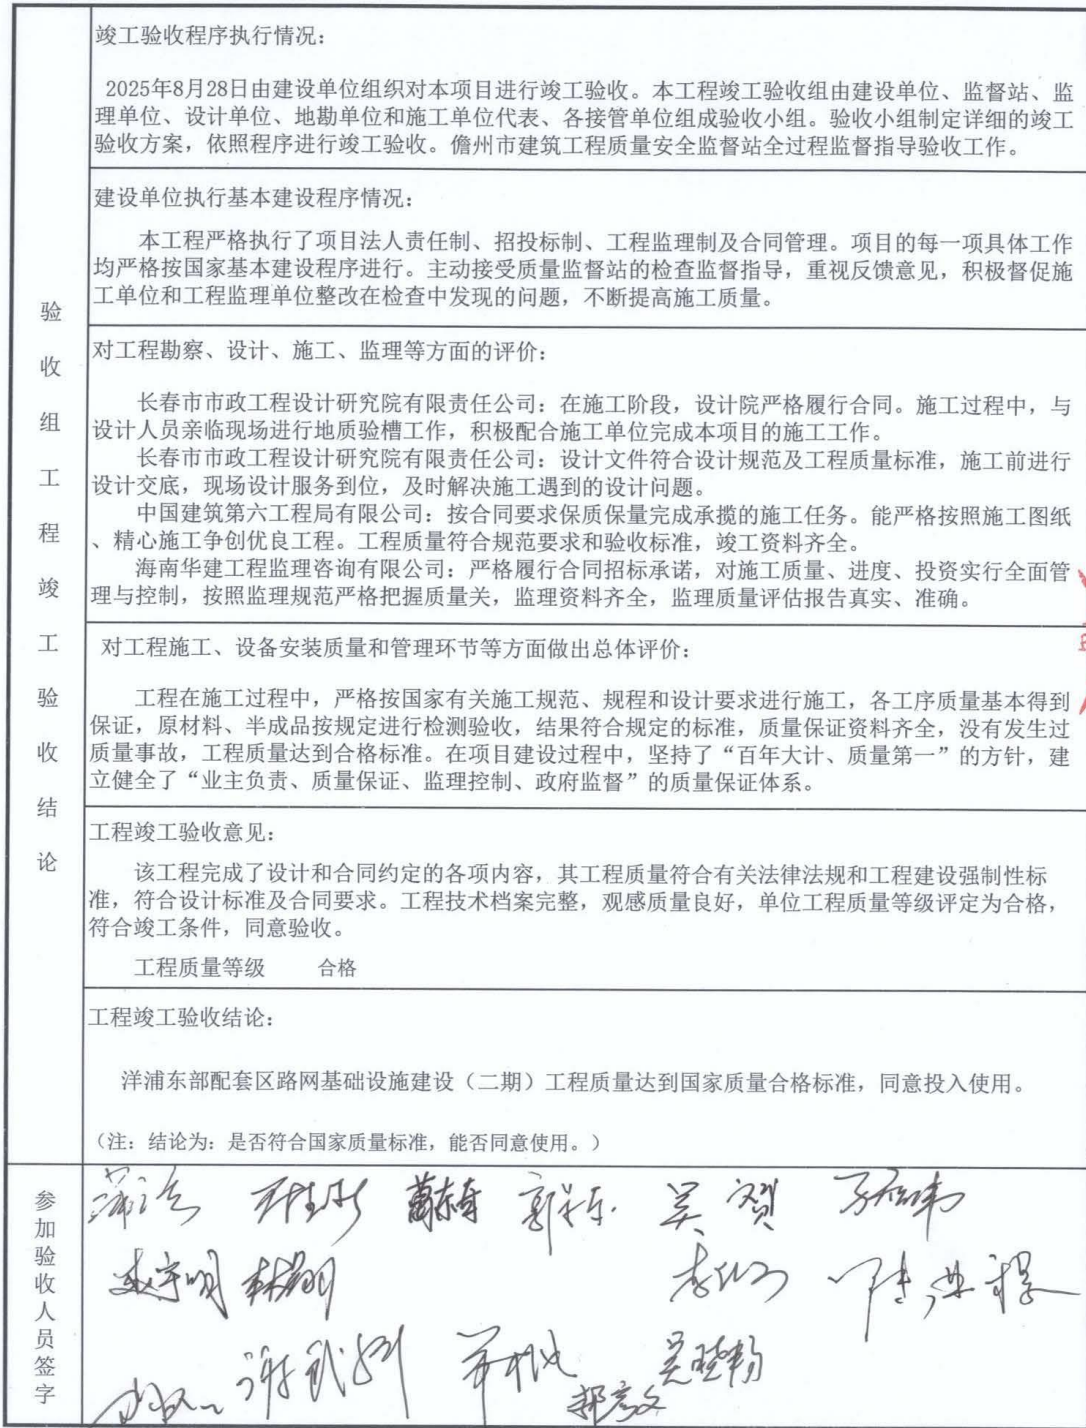 竣工验收程序执行情况：
2025年8月28日由建设单位组织对本项目进行竣工验收。本工程竣工验收组由建设单位、监督站、监
理单位、设计单位、地勘单位和施工单位代表、各接管单位组成验收小组。验收小组制定详细的竣工
验收方案，依照程序进行竣工验收。儋州市建筑工程质量安全监督站全过程监督指导验收工作。
建设单位执行基本建设程序情况：
本工程严格执行了项目法人责任制、招投标制、工程监理制及合同管理。项目的每一项具体工作
均严格按国家基本建设程序进行。主动接受质量监督站的检查监督指导，重视反馈意见，积极督促施
工单位和工程监理单位整改在检查中发现的问题，不断提高施工质量。
验收组工程竣工验收结论
对工程勘察、设计、施工、监理等方面的评价：
长春市市政工程设计研究院有限责任公司：在施工阶段，设计院严格履行合同。施工过程中，与
设计人员亲临现场进行地质验槽工作，积极配合施工单位完成本项目的施工工作。
长春市市政工程设计研究院有限责任公司：设计文件符合设计规范及工程质量标准，施工前进行
设计交底，现场设计服务到位，及时解决施工遇到的设计问题。
中国建筑第六工程局有限公司：按合同要求保质保量完成承揽的施工任务。能严格按照施工图纸
、精心施工争创优良工程。工程质量符合规范要求和验收标准，竣工资料齐全。
海南华建工程监理咨询有限公司：严格履行合同招标承诺，对施工质量、进度、投资实行全面管
理与控制，按照监理规范严格把握质量关，监理资料齐全，监理质量评估报告真实、准确。
对工程施工、设备安装质量和管理环节等方面做出总体评价：
工程在施工过程中，严格按国家有关施工规范、规程和设计要求进行施工，各工序质量基本得到
保证，原材料、半成品按规定进行检测验收，结果符合规定的标准，质量保证资料齐全，没有发生过
质量事故，工程质量达到合格标准。在项目建设过程中，坚持了“百年大计、质量第一”的方针，建
立健全了“业主负责、质量保证、监理控制、政府监督”的质量保证体系。
工程竣工验收意见：
该工程完成了设计和合同约定的各项内容，其工程质量符合有关法律法规和工程建设强制性标
准，符合设计标准及合同要求。工程技术档案完整，观感质量良好，单位工程质量等级评定为合格，
符合竣工条件，同意验收。
工程质量等级 合格
工程竣工验收结论：
洋浦东部配套区路网基础设施建设（二期）工程质量达到国家质量合格标准，同意投入使用。
（注：结论为：是否符合国家质量标准，能否同意使用。）
参加验收人员签字
吴贺
吴晓畅
郝彦文